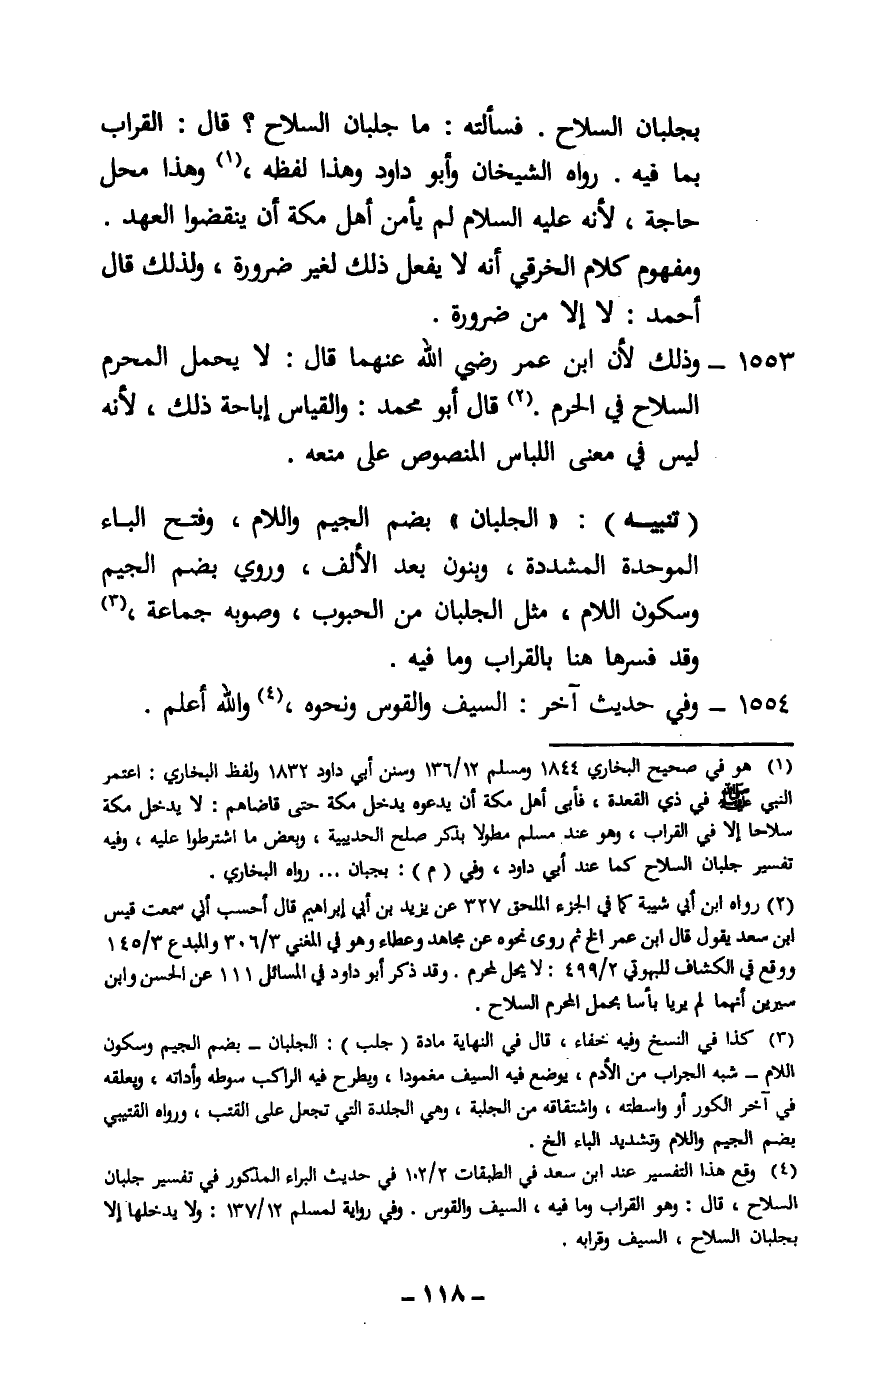 بجلبان السلاح . فسألته : ما جلبان السلاح ؟ قال : القراب
بما فيه . رواه الشيخان وأبو داود وهذا لفظه ،(١) وهذا محل
حاجة ، لأنه عليه السلام لم يأمن أهل مكة أن ينقضوا العهد .
ومفهوم كلام الخرقي أنه لا يفعل ذلك لغير ضرورة ، ولذلك قال
أحمد : لا إلا من ضرورة .
١٥٥٣ – وذلك لأن ابن عمر رضي الله عنهما قال : لا يحمل المحرم
السلاح في الحرم .(٢) قال أبو محمد : والقياس إباحة ذلك ، لأنه
ليس في معنى اللباس المنصوص على منعه .
( تنبيـــه ) : « الجلبان » بضم الجيم واللام ، وفتـح البـاء
الموحدة المشددة ، وبنون بعد الألف ، وروي بضم الجيم
وسكون اللام ، مثل الجلبان من الحبوب ، وصوبه جماعة ،(٣)
وقد فسرها هنا بالقراب وما فيه .
١٥٥٤ – وفي حديث آخر : السيف والقوس ونحوه ،(٤) والله أعلم .
(١) هو في صحيح البخاري ١٨٤٤ ومسلم ١٣٦/١٢ وسنن أبي داود ١٨٣٢ ولفظ البخاري : اعتمر
النبي ﷺ في ذي القعدة ، فأبى أهل مكة أن يدعوه يدخل مكة حتى قاضاهم : لا يدخل مكة
سلاحا إلا في القراب ، وهو عند مسلم مطولا بذكر صلح الحديبية ، وبعض ما اشترطوا عليه ، وفيه
تفسير جلبان السلاح كما عند أبي داود ، وفي ( م ) : بجبان ... رواه البخاري .
(٢) رواه ابن أبي شيبة كما في الجزء الملحق ٣٢٧ عن يزيد بن أبي إبراهيم قال أحسب أني سمعت قيس
ابن سعد يقول قال ابن عمر الخ ثم روى نحوه عن مجاهد وعطاء وهو في المغني ٣٠٦/٣ والمبدع ١٤٥/٣
ووقع في الكشاف للبهوتي ٤٩٩/٢ : لا يحل لمحرم . وقد ذكر أبو داود في المسائل ١١١ عن الحسن وابن
سيرين أنهما لم يريا بأسا بحمل المحرم السلاح .
(٣) كذا في النسخ وفيه خفاء ، قال في النهاية مادة ( جلب ) : الجلبان – بضم الجيم وسكون
اللام – شبه الجراب من الأدم ، يوضع فيه السيف مغمودا ، ويطرح فيه الراكب سوطه وأداته ، ويعلقه
في آخر الكور أو واسطته ، واشتقاقه من الجلبة ، وهي الجلدة التي تجعل على القتب ، ورواه القتيبي
بضم الجيم واللام وتشديد الباء الخ .
(٤) وقع هذا التفسير عند ابن سعد في الطبقات ١٠٢/٢ في حديث البراء المذكور في تفسير جلبان
السلاح ، قال : وهو القراب وما فيه ، السيف والقوس . وفي رواية لمسلم ١٣٧/١٢ : ولا يدخلها إلا
بجلبان السلاح ، السيف وقرابه .
– ١١٨ –